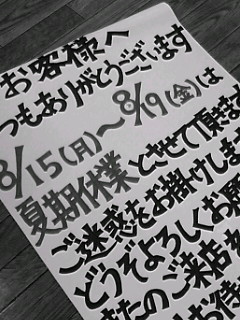 お客様へ
つもありがとうございます
8/15(月)〜8/19(金)は
夏期休業とさせて頂きます
ご迷惑をお掛けしま
どうぞよろしくお願
またのご来店を
お待